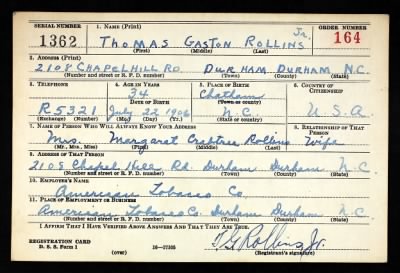 SERIAL NUMBER 1. NAME (Print) ORDER NUMBER
1362 THOMAS GASTON ROLLINS Jr. 164
(First) (Middle) (Last)
2. ADDRESS (Print)
2108 CHAPEL HILL RD. DURHAM DURHAM N.C.
(Number and street or R. F. D. number) (Town) (County) (State)
3. TELEPHONE 4. AGE IN YEARS 5. PLACE OF BIRTH 6. COUNTRY OF CITIZENSHIP
34 Chatham
DATE OF BIRTH (Town or county)
R5321 July 22 1906 N.C. U.S.A
(Exchange) (Number) (Mo.) (Day) (Yr.) (State or country)
7. NAME OF PERSON WHO WILL ALWAYS KNOW YOUR ADDRESS 8. RELATIONSHIP OF THAT PERSON
Mrs. Margaret Crabtree Rollins Wife
(Mr., Mrs., Miss) (First) (Middle) (Last)
9. ADDRESS OF THAT PERSON
2108 Chapel Hill Rd. Durham Durham N.C.
(Number and street or R. F. D. number) (Town) (County) (State)
10. EMPLOYER'S NAME
American Tobacco Co
11. PLACE OF EMPLOYMENT OR BUSINESS
American Tobacco Co. Durham Durham N.C.
(Number and street or R. F. D. number) (Town) (County) (State)
I AFFIRM THAT I HAVE VERIFIED ABOVE ANSWERS AND THAT THEY ARE TRUE.
REGISTRATION CARD T G Rollins Jr.
D. S. S. Form 1 (over) 16—17105 (Registrant's signature)